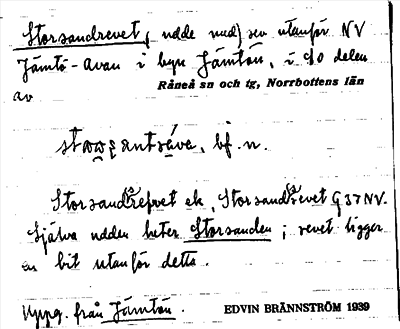 Storsandrevet (udde med) rev utanför NV
Jämtö-Avan i byn Jämtön, i SO delen
av
Råneå sn och tg, Norrbottens län
bf. n.
ek. Storsandrevet G 37 NV.
Själva udden heter Storsanden; revet ligger
en bit utanför detta.
Uppg. från Jämtön.
EDVIN BRÄNNSTRÖM 1939